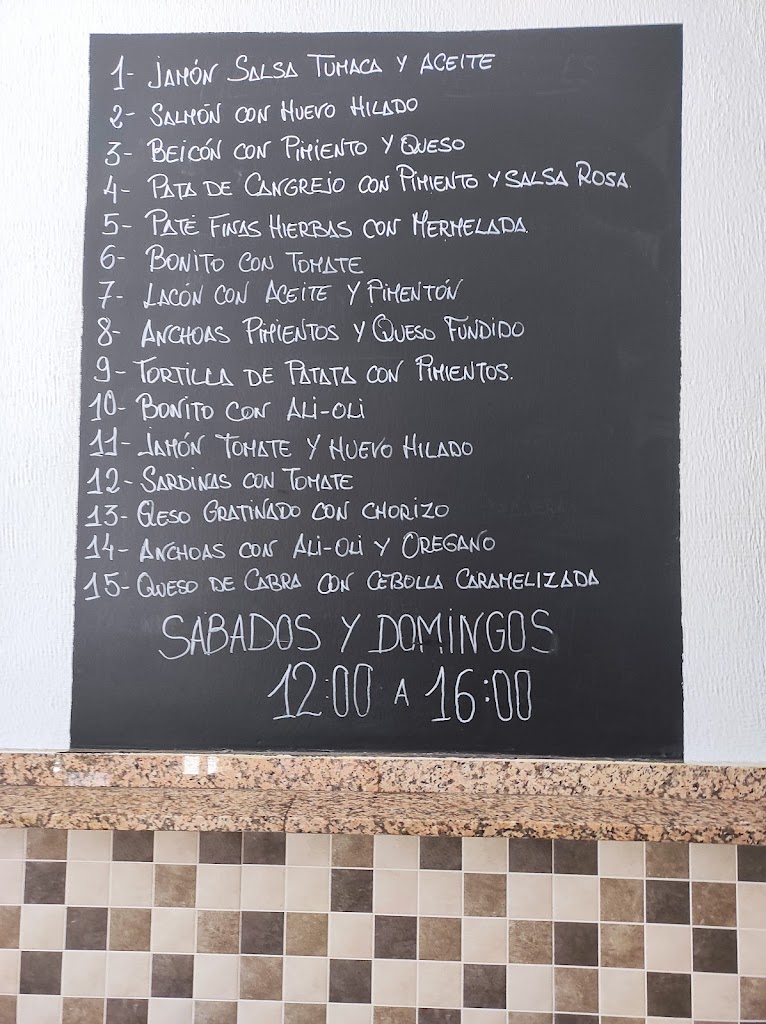 1- JAMÓN SALSA TUMACA Y ACEITE
2- SALMÓN CON HUEVO HILADO
3- BEICÓN CON PIMIENTO Y QUESO
4- PATA DE CANGREJO CON PIMIENTO Y SALSA ROSA.
5- PATÉ FINAS HIERBAS CON MERMELADA.
6- BONITO CON TOMATE
7- LACÓN CON ACEITE Y PIMENTÓN
8- ANCHOAS PIMIENTOS Y QUESO FUNDIDO
9- TORTILLA DE PATATA CON PIMIENTOS.
10- BONITO CON ALI-OLI
11- JAMÓN TOMATE Y HUEVO HILADO
12- SARDINAS CON TOMATE
13- QESO GRATINADO CON CHORIZO
14- ANCHOAS CON ALI-OLI Y OREGANO
15- QUESO DE CABRA CON CEBOLLA CARAMELIZADA
SÁBADOS Y DOMINGOS
12:00 A 16:00